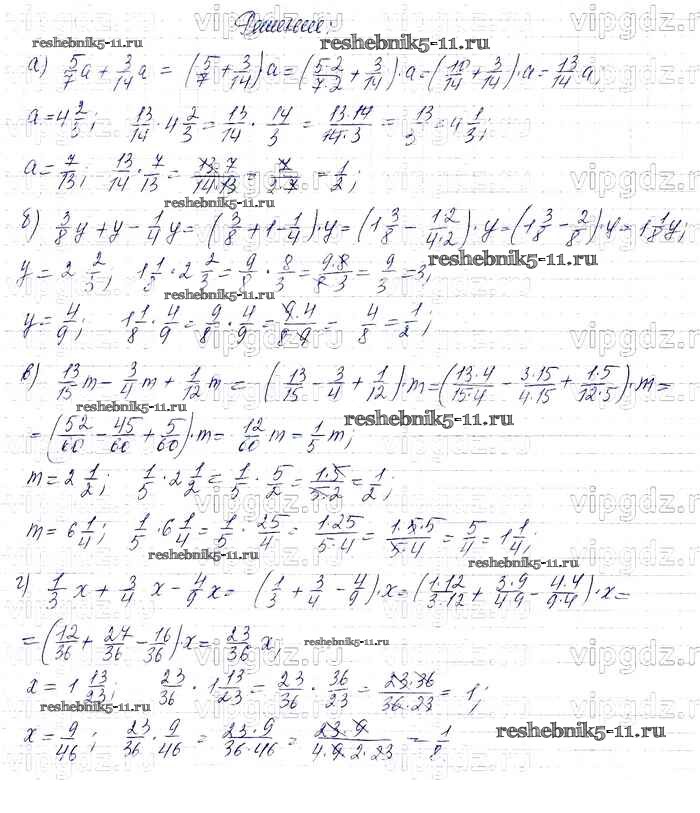 Решение:
reshebnik5-11.ru
а) 5/7 a + 3/14 a = (5/7 + 3/14)·a = (5·2/7·2 + 3/14)·a = (10/14 + 3/14)·a = 13/14 a;
reshebnik5-11.ru
a = 4 2/3; 13/14 · 4 2/3 = 13/14 · 14/3 = 13·14/14·3 = 13/3 = 4 1/3;
a = 7/13; 13/14 · 7/13 = 13·7/14·13 = 7/2·7 = 1/2;
reshebnik5-11.ru
б) 3/8 y + y - 1/4 y = (3/8 + 1 - 1/4)·y = (1 3/8 - 1·2/4·2)·y = (1 3/8 - 2/8)·y = 1 1/8 y;
reshebnik5-11.ru
y = 2 2/3; 1 1/8 · 2 2/3 = 9/8 · 8/3 = 9·8/8·3 = 9/3 = 3;
reshebnik5-11.ru
y = 4/9; 1 1/8 · 4/9 = 9/8 · 4/9 = 9·4/8·9 = 4/8 = 1/2;
в) 13/15 m - 3/4 m + 1/12 m = (13/15 - 3/4 + 1/12)·m = (13·4/15·4 - 3·15/4·15 + 1·5/12·5)·m =
reshebnik5-11.ru
= (52/60 - 45/60 + 5/60)·m = 12/60 m = 1/5 m;
m = 2 1/2; 1/5 · 2 1/2 = 1/5 · 5/2 = 1·5/5·2 = 1/2;
m = 6 1/4; 1/5 · 6 1/4 = 1/5 · 25/4 = 1·25/5·4 = 1·5·5/5·4 = 5/4 = 1 1/4;
reshebnik5-11.ru
reshebnik5-11.ru
г) 1/3 x + 3/4 x - 4/9 x = (1/3 + 3/4 - 4/9)·x = (1·12/3·12 + 3·9/4·9 - 4·4/9·4)·x =
= (12/36 + 27/36 - 16/36)·x = 23/36 x;
reshebnik5-11.ru
x = 1 13/23; 23/36 · 1 13/23 = 23/36 · 36/23 = 23·36/36·23 = 1;
reshebnik5-11.ru
x = 9/46; 23/36 · 9/46 = 23·9/36·46 = 23·9/4·9·2·23 = 1/8
reshebnik5-11.ru
vipgdz.ru